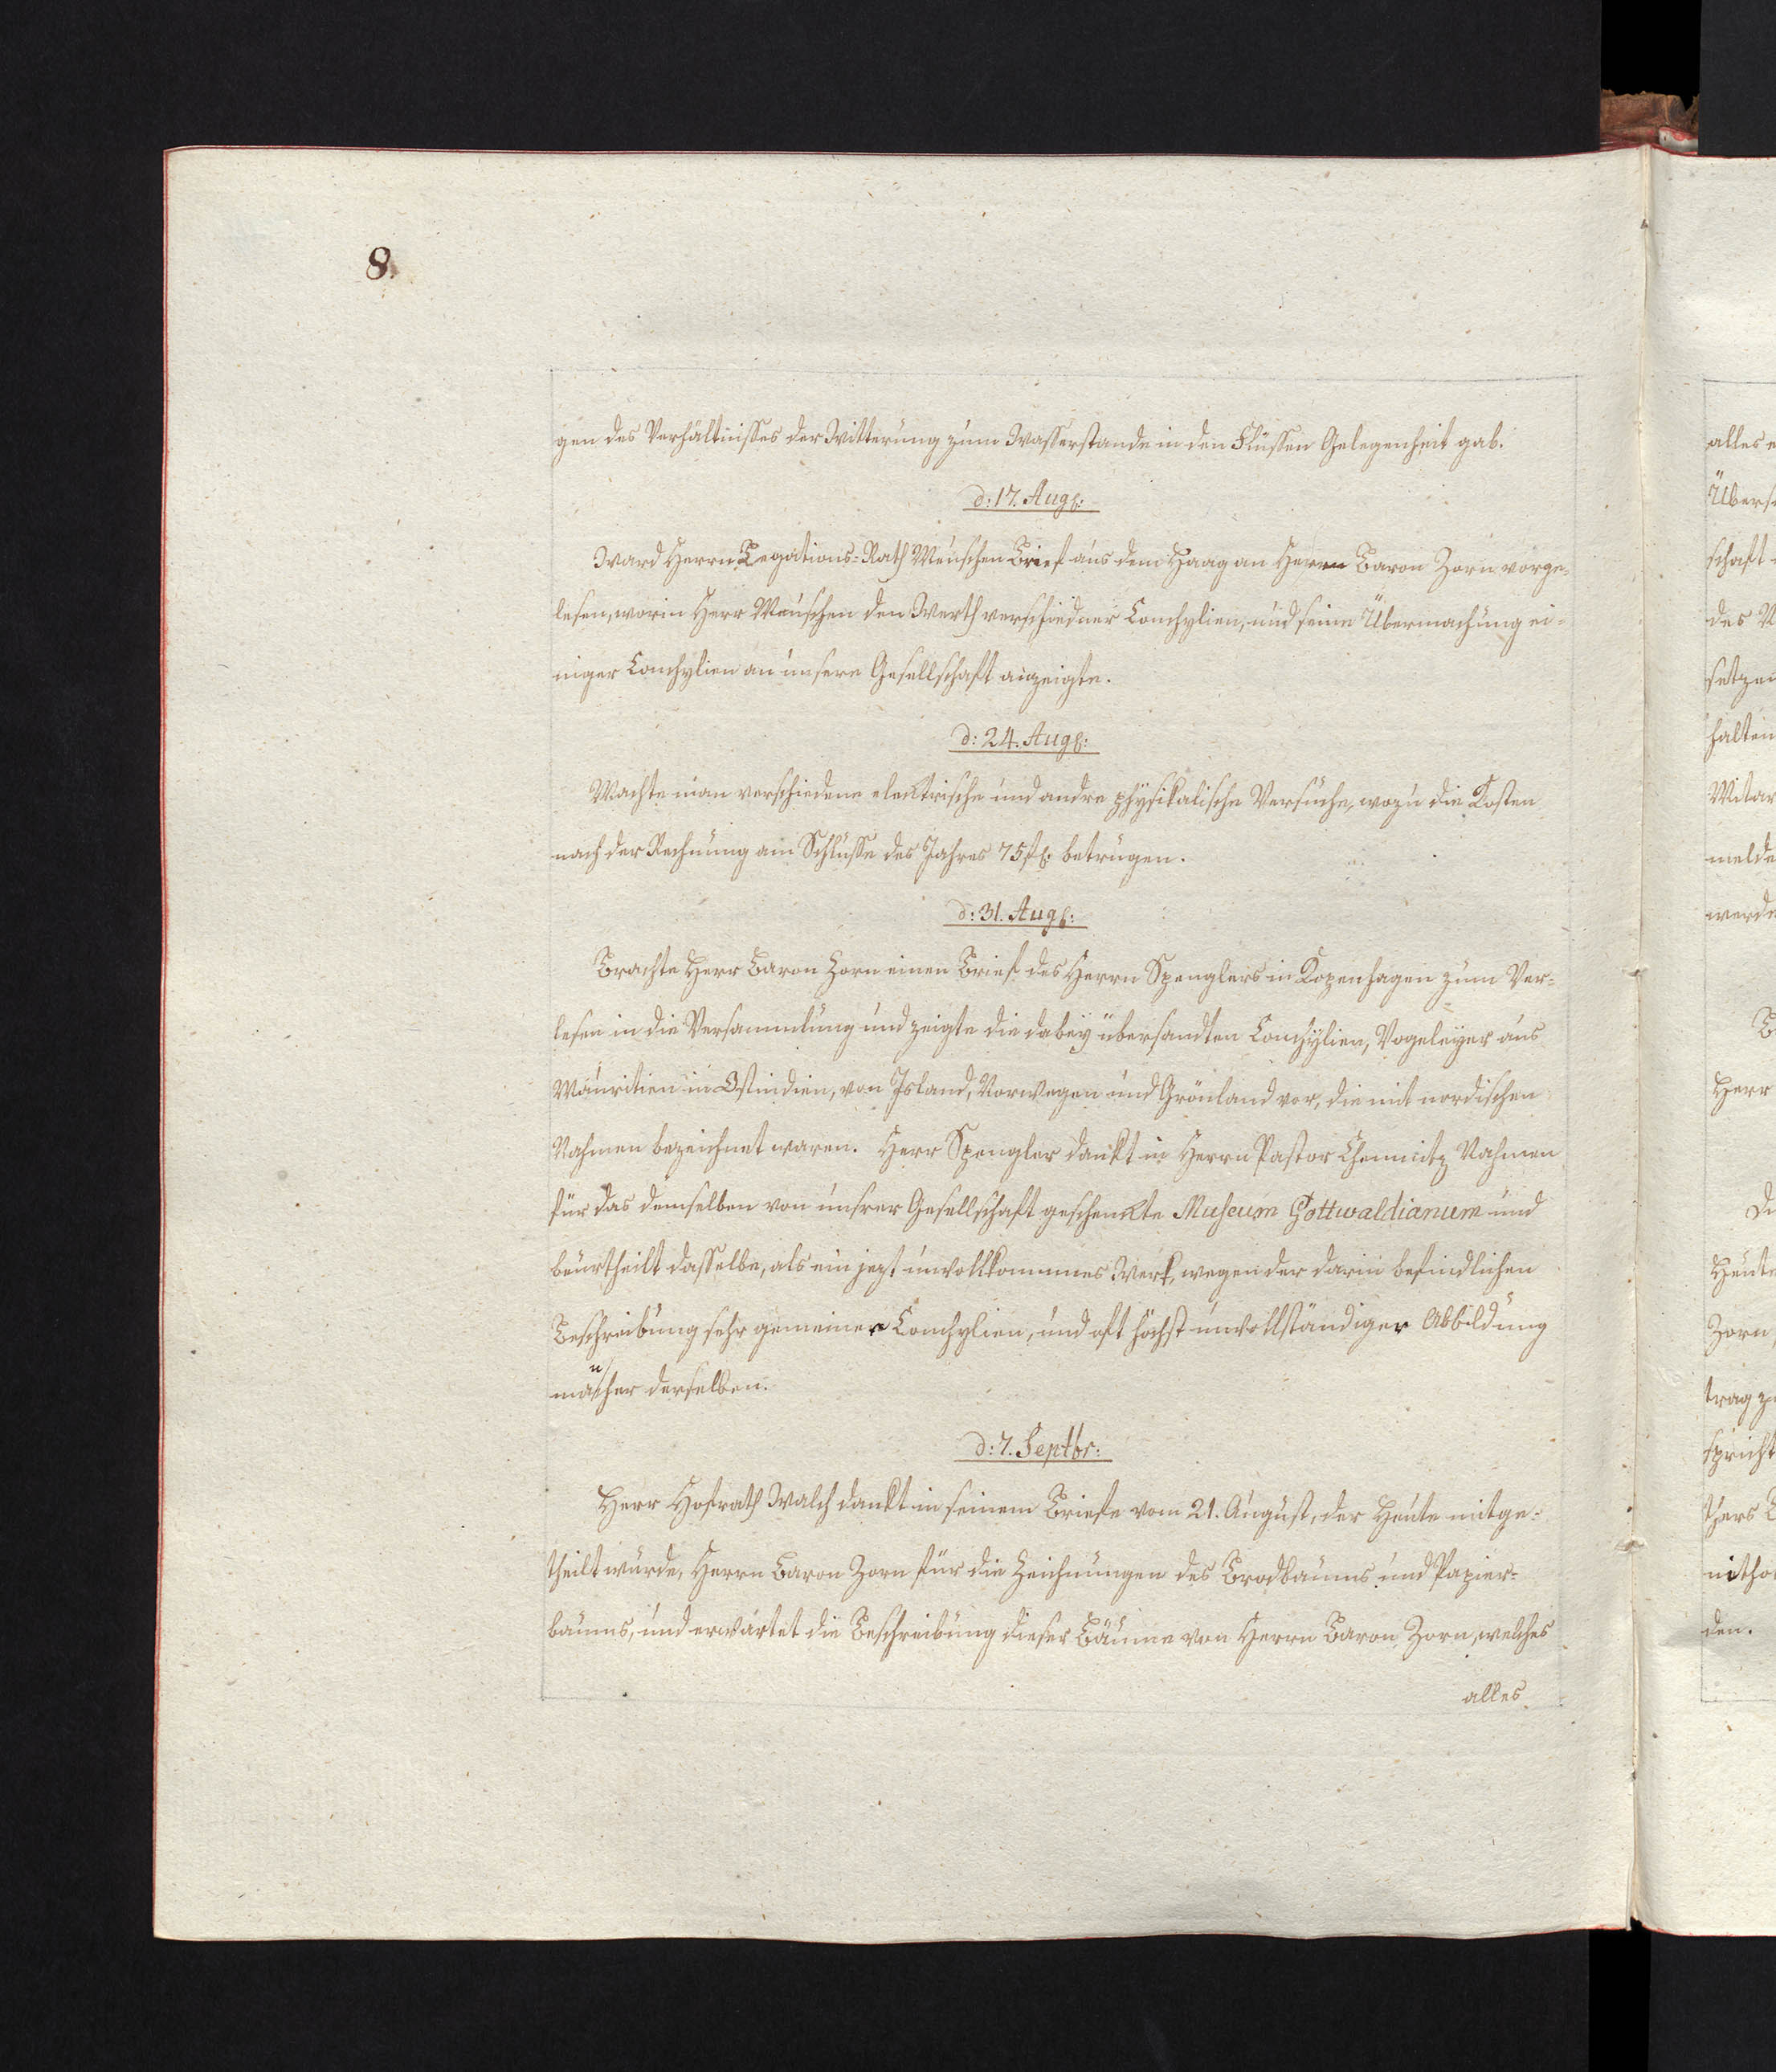 8.
gen des Verhältnisses der Witterung zum Wasserstande in den Flüssen Gelegenheit gab.
d: 17. Aug:
Ward Herrn Legations=Rath Meuschen Brief aus dem Haag an Herrn Baron Zorn vorge=
lesen, worin Herr Meuschen den Werth verschiedner Conchylien, und seine Übermachung ei=
niger Conchylien an unsere Gesellschaft anzeigte.
d: 24. Aug:
Machte man verschiedene elektrische und andre physikalische Versuche, wozu die Kosten
nach der Rechnung am Schlusse des Jahres 75 fl: betrugen.
d: 31. Aug:
Brachte Herr Baron Zorn einen Brief des Herrn Spenglers in Kopenhagen zum Ver=
lesen in die Versammlung und zeigte die dabey übersandten Conchylien, Vogeleyer aus
Mauritien in Ostindien, von Island, Norwegen und Grönland vor, die mit nordischen
Nahmen bezeichnet waren. Herr Spengler dankt in Herrn Pastor Chemnitz Nahmen
für das demselben von unsrer Gesellschaft geschenkte Museum Gottwaldianum und
beurtheilt dasselbe, als ein jezt unvollkommnes Werk, wegen der darin befindlichen
Beschreibung sehr gemeiner Conchylien, und oft höchst unvollständiger Abbildung
mancher derselben.
d: 7. Septbr:
Herr Hofrath Walch dankt in seinem Briefe vom 21. August, der heute mitge=
theilt wurde, Herrn Baron Zorn für die Zeichnungen des Brodbaums und Papier=
baums, und erwartet die Beschreibung dieser Bäume von Herrn Baron Zorn, welches
alles
alles
Übers
schaft
des
setzen
halten
melde
werde
Herr
Heute
Zorn
trag
spricht
den.